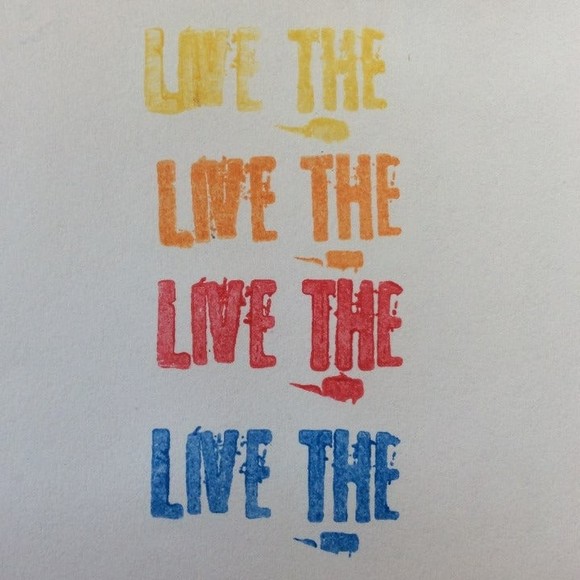 LIVE THE
LIVE THE
LIVE THE
LIVE THE